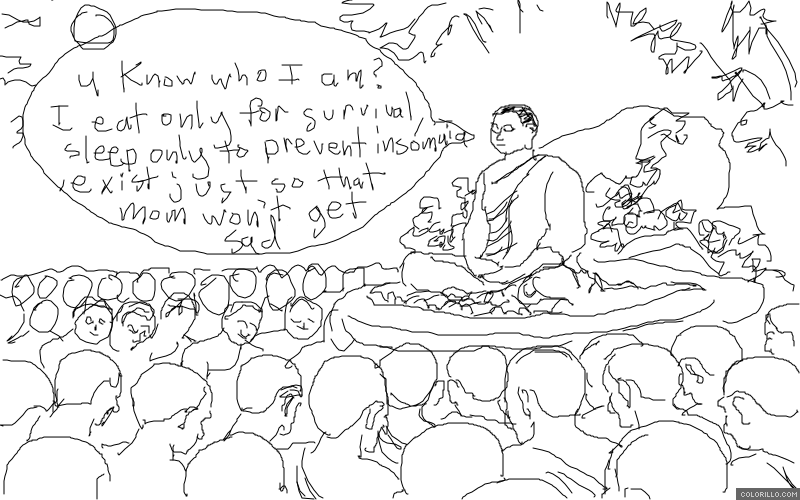 u know who I am?
I eat only for survival,
sleep only to prevent insomnia
, exist just so that
mom won't get
sad
COLORILLO.COM